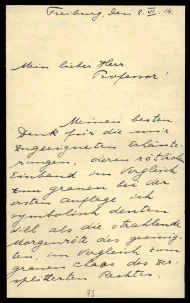 Freiburg, den 8. VI. 14.
Mein lieber Herr
Professor!
Meinen besten
Dank für die mir
zugeeigneten Erläute-
rungen, deren rötlich
Einband im Vergleich
zum grauen bei der
ersten Auflage ich
symbolisch deuten
will als die strahlende
Morgenröte des geeinig-
ten, im Vergleich zum
grauen Chaos des zer-
splitterten Rechtes.
73